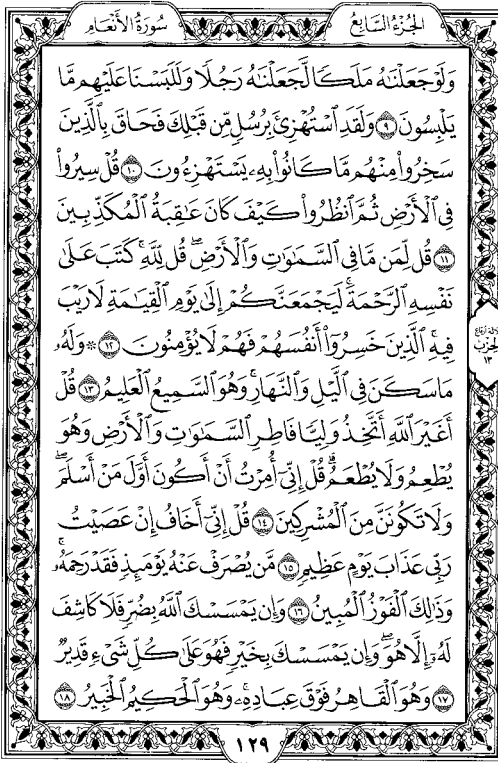 الجزء السابع
سورة الأنعام
وَلَوْ جَعَلْنَٰهُ مَلَكًا لَّجَعَلْنَٰهُ رَجُلًا وَلَلَبَسْنَا عَلَيْهِم مَّا
يَلْبِسُونَ ۝٩ وَلَقَدِ ٱسْتُهْزِئَ بِرُسُلٍ مِّن قَبْلِكَ فَحَاقَ بِٱلَّذِينَ
سَخِرُوا۟ مِنْهُم مَّا كَانُوا۟ بِهِۦ يَسْتَهْزِءُونَ ۝١٠ قُلْ سِيرُوا۟
فِى ٱلْأَرْضِ ثُمَّ ٱنظُرُوا۟ كَيْفَ كَانَ عَٰقِبَةُ ٱلْمُكَذِّبِينَ
۝١١ قُل لِّمَن مَّا فِى ٱلسَّمَٰوَٰتِ وَٱلْأَرْضِ ۖ قُل لِّلَّهِ ۚ كَتَبَ عَلَىٰ
نَفْسِهِ ٱلرَّحْمَةَ ۚ لَيَجْمَعَنَّكُمْ إِلَىٰ يَوْمِ ٱلْقِيَٰمَةِ لَا رَيْبَ
فِيهِ ۚ ٱلَّذِينَ خَسِرُوٓا۟ أَنفُسَهُمْ فَهُمْ لَا يُؤْمِنُونَ ۝١٢ ۞ وَلَهُۥ
مَا سَكَنَ فِى ٱلَّيْلِ وَٱلنَّهَارِ ۚ وَهُوَ ٱلسَّمِيعُ ٱلْعَلِيمُ ۝١٣ قُلْ
أَغَيْرَ ٱللَّهِ أَتَّخِذُ وَلِيًّا فَاطِرِ ٱلسَّمَٰوَٰتِ وَٱلْأَرْضِ وَهُوَ
يُطْعِمُ وَلَا يُطْعَمُ ۗ قُلْ إِنِّىٓ أُمِرْتُ أَنْ أَكُونَ أَوَّلَ مَنْ أَسْلَمَ ۖ
وَلَا تَكُونَنَّ مِنَ ٱلْمُشْرِكِينَ ۝١٤ قُلْ إِنِّىٓ أَخَافُ إِنْ عَصَيْتُ
رَبِّى عَذَابَ يَوْمٍ عَظِيمٍ ۝١٥ مَّن يُصْرَفْ عَنْهُ يَوْمَئِذٍ فَقَدْ رَحِمَهُۥ ۚ
وَذَٰلِكَ ٱلْفَوْزُ ٱلْمُبِينُ ۝١٦ وَإِن يَمْسَسْكَ ٱللَّهُ بِضُرٍّ فَلَا كَاشِفَ
لَهُۥٓ إِلَّا هُوَ ۖ وَإِن يَمْسَسْكَ بِخَيْرٍ فَهُوَ عَلَىٰ كُلِّ شَىْءٍ قَدِيرٌ
۝١٧ وَهُوَ ٱلْقَاهِرُ فَوْقَ عِبَادِهِۦ ۚ وَهُوَ ٱلْحَكِيمُ ٱلْخَبِيرُ ۝١٨
ثلاثة أرباع
الحزب
١٣
١٢٩